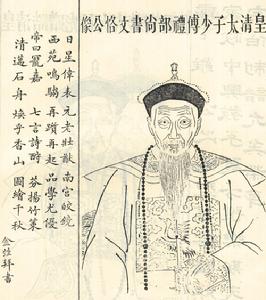 皇清太子少傅禮部尚書文恪公像
日星偉表 元老壯猷 南宮皎鏡
西苑鳴騶 再躓再起 品學尤優
帝曰寵嘉 七言詩酧 芬揚竹策
清遊石舟 煥乎香山 圖繪千秋
金甡拜書